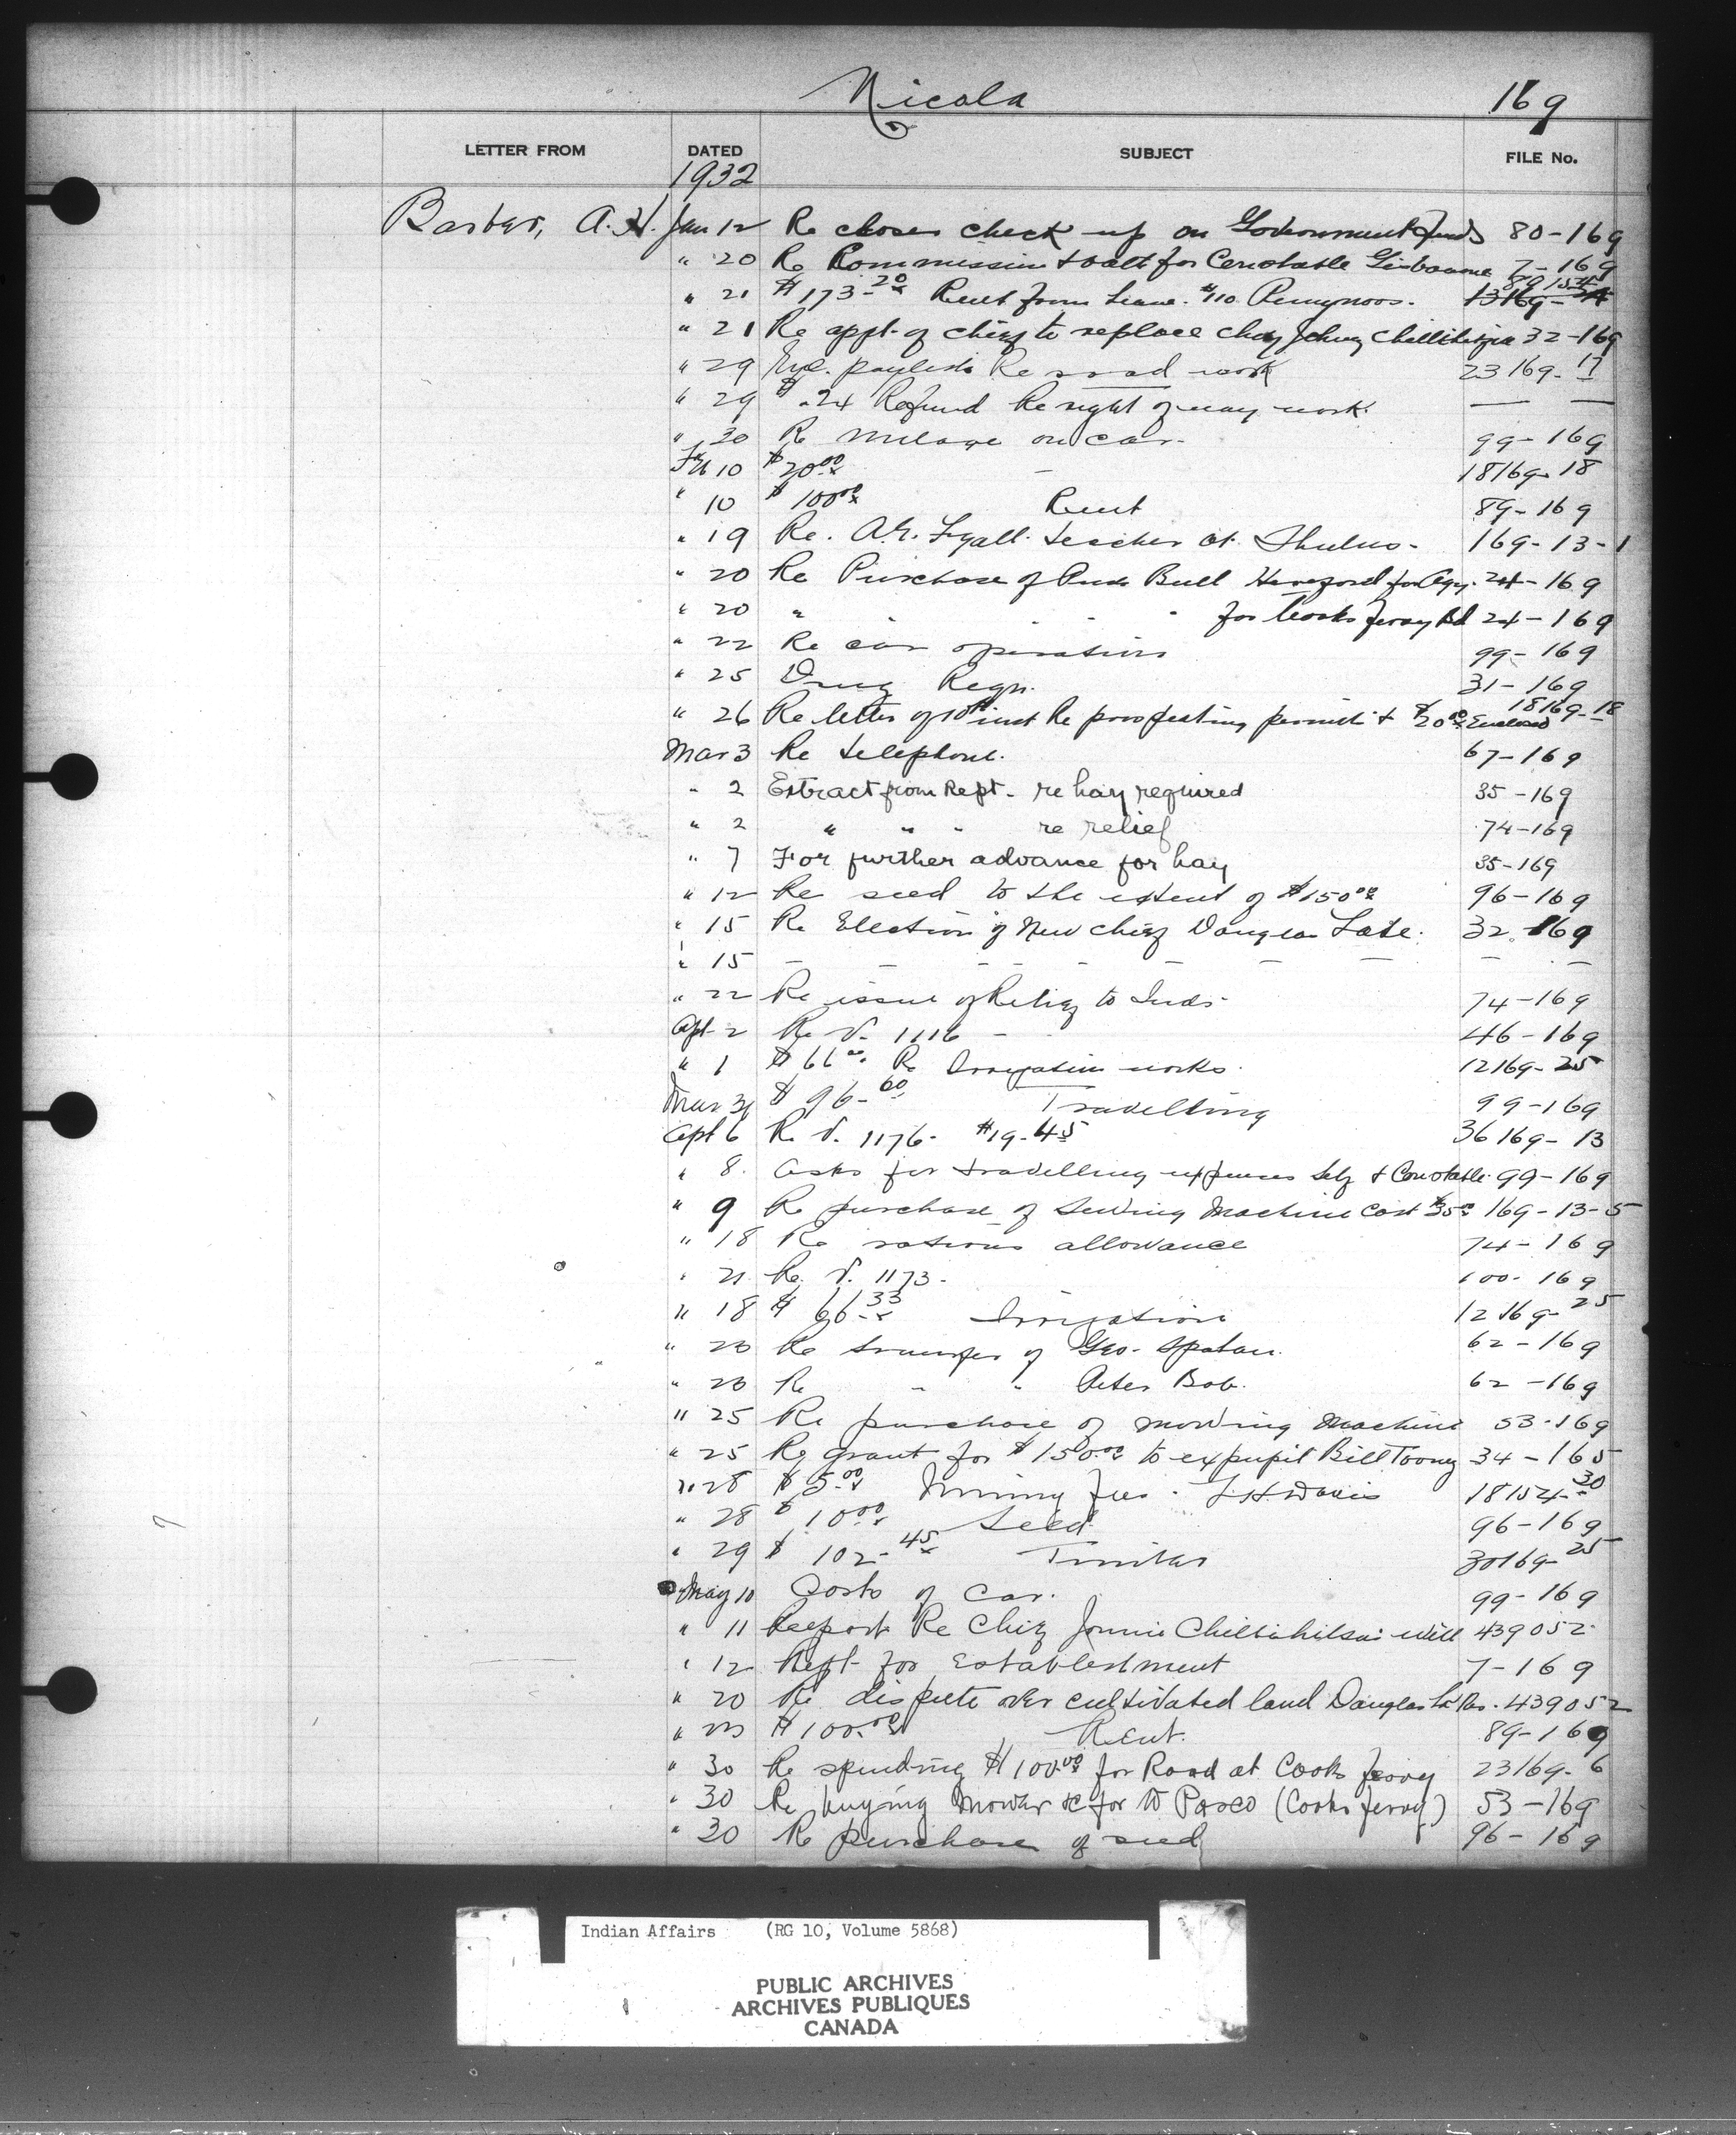 Nicola 169
LETTER FROM DATED SUBJECT FILE No.
1932
Barber, A.H. Jan 12 Re closer check up on Government funds 80-169
" 20 Re Commission & oath for Constable 7-169
" 21 $173.20 Rent from Lease #110
" 21 Re appt. of chief to replace chief Johnny Chillihitzia 32-169
" 29 paylists Re road work 23169-17
" 29 $.24 Refund Re right of way work — —
" 30 Re mileage on car - 99-169
Feb 10 $20.00 - 18169-18
" 10 $100.00 Rent 89-169
" 19 Re. Lyall teacher at Shulus - 169-13-1
" 20 Re Purchase of Bull Hereford for Agy. 24-169
" 20 " - - " for Cooks Ferry Bd 24-169
" 22 Re car operation 99-169
" 25 Drug Reqn. 31-169
" 26 Re letter of 10th inst Re prospecting permit & $20.00 Enclosed 18169-18
Mar 3 Re telephone. 67-169
" 2 Extract from Rept - re hay required 35-169
" 2 " " " re relief 74-169
" 7 For further advance for hay 35-169
" 12 Re seed to the extent of $150.00 96-169
" 15 Re Election of New chief Douglas Lake. 32-169
" 15 — — — — — — — — —
" 22 Re issue of Relief to Inds. 74-169
Apl 2 Re V. 1116 - 46-169
" 1 $66.00 Re Irrigation works. 12169-25
Mar 31 $96.60 Travelling 99-169
Apl 6 Re V. 1176. $19.45 36169-13
" 8. Asks for travelling expenses self & Constable. 99-169
" 9 Re purchase of Sewing Machine cost $35.00 169-13-5
" 18 Re rations allowance 74-169
" 21 Re. V. 1173. 100-169
" 18 $66.33 Irrigation 12169-25
" 20 Re transfer of Geo. 62-169
" 20 Re " " Peter Bob. 62-169
" 25 Re purchase of mowing machine 53-169
" 25 Re grant for $150.00 to expupil Bill Tooney 34-165
" 28 $5.00 Mining fees. Davis 18154-30
" 28 $10.00 Seed 96-169
" 29 $102.45 Timber 30169-25
May 10 Costs of car. 99-169
" 11 Report Re Chief Johnnie Chillihitzia's will 439052
" 12 Rept for Establishment 7-169
" 20 Re dispute over cultivated land Douglas Lk Res. 439052
" $100.00 Rent. 89-169
" 30 Re spending $100.00 for Road at Cooks Ferry 23169-6
" 30 Re buying mower &c for W Pasco (Cooks Ferry) 53-169
" 30 Re purchase of seed 96-169
Indian Affairs (RG 10, Volume 5868)
PUBLIC ARCHIVES
ARCHIVES PUBLIQUES
CANADA